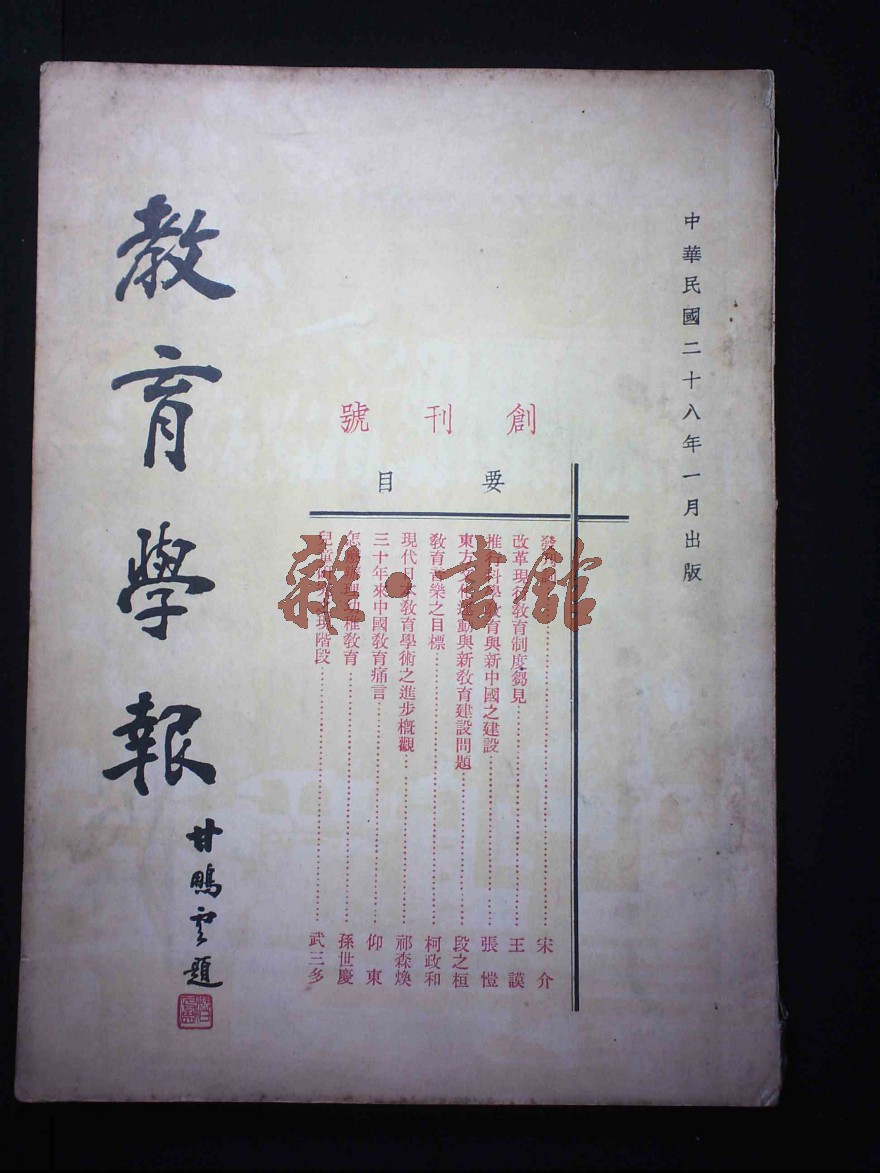 中華民國二十八年一月出版
創刊號
要目
發刊詞……宋介
改革現行教育制度芻見……王謨
推行科學教育與新中國之建設……張愷
東方文化運動與新教育建設問題……段之桓
教育音樂之目標……柯政和
現代日本教育學術之進步概觀……祁森煥
三十年來中國教育痛言……仰東
怎樣辦理幼稚教育……孫世慶
兒童 現階段……武三多
教育學報
甘鵬雲題
雜·書館